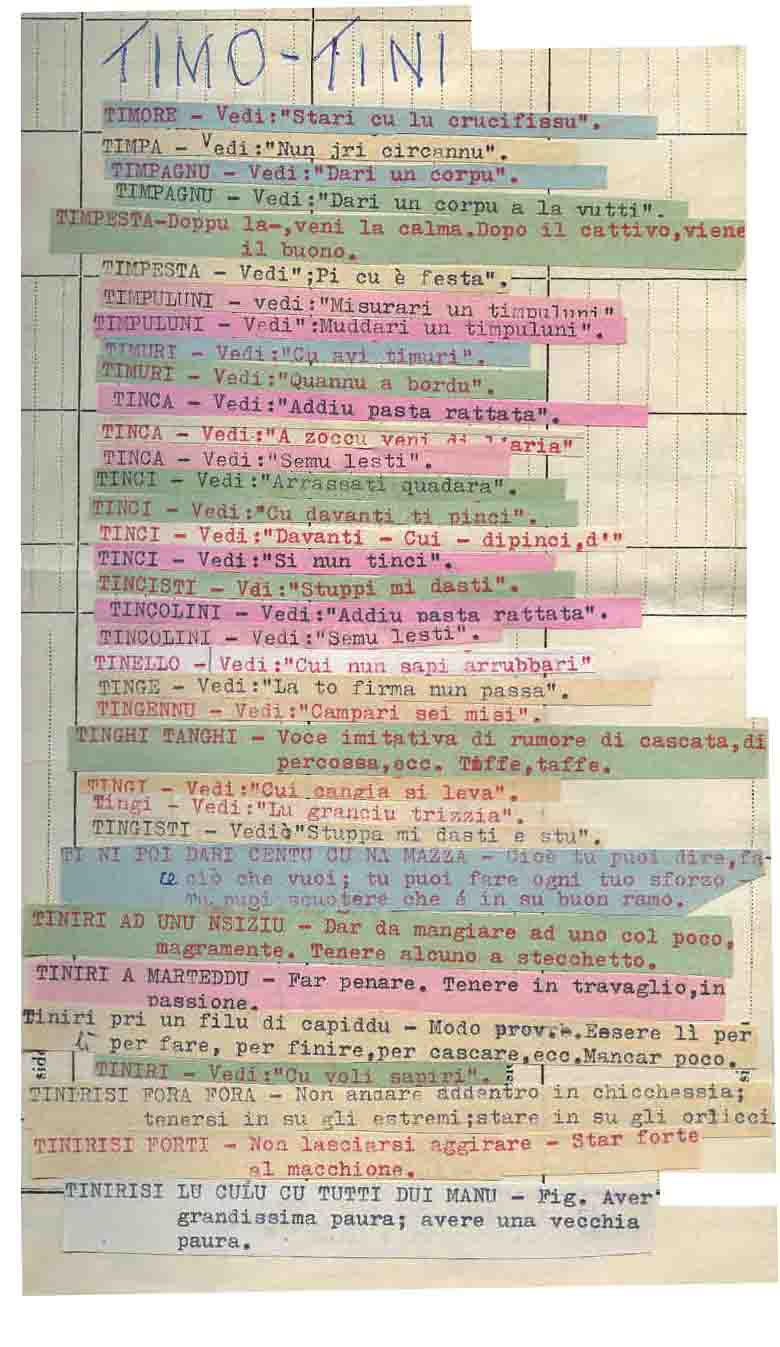 TIMO-TINI
TIMORE - Vedi:"Stari cu lu crucifissu".
TIMPA - Vedi:"Nun jri circannu".
TIMPAGNU - Vedi:"Dari un corpu".
TIMPAGNU - Vedi:"Dari un corpu a la vutti".
TIMPESTA-Doppu la-,veni la calma.Dopo il cattivo,viene
il buono.
TIMPESTA - Vedi";Pi cu è festa".
TIMPULUNI - vedi:"Misurari un timpuluni"
TIMPULUNI - Vedi":Muddari un timpuluni".
TIMURI - Vedi:"Cu avi timuri".
TIMURI - Vedi:"Quannu a bordu".
TINCA - Vedi:"Addiu pasta rattata".
TINCA - Vedi:"A zoccu veni di l'aria"
TINCA - Vedi:"Semu lesti".
TINCI - Vedi:"Arrassati quadara".
TINCI - Vedi:"Cu davanti ti pinci".
TINCI - Vedi:"Davanti - Cui - dipinci,d'"
TINCI - Vedi:"Si nun tinci".
TINCISTI - Vdi:"Stuppi mi dasti".
TINCOLINI - Vedi:"Addiu pasta rattata".
TINCOLINI - Vedi:"Semu lesti".
TINELLO - Vedi:"Cui nun sapi arrubbari"
TINGE - Vedi:"La to firma nun passa".
TINGENNU - Vedi:"Campari sei misi".
TINGHI TANGHI - Voce imitativa di rumore di cascata,di
percossa,ecc. Tiffe,taffe.
TINGI - Vedi:"Cui cangia si leva".
Tingi - Vedi:"Lu granciu trizzia".
TINGISTI - Vediò"Stuppa mi dasti e stu".
TI NI POI DARI CENTU CU NA MAZZA - Cioè tu puoi dire,fa-
re ciò che vuoi; tu puoi fare ogni tuo sforzo
Tu puoi scuotere che é in su buon ramo.
TINIRI AD UNU NSIZIU - Dar da mangiare ad uno col poco,
magramente. Tenere alcuno a stecchetto.
TINIRI A MARTEDDU - Far penare. Tenere in travaglio,in
passione.
Tiniri pri un filu di capiddu - Modo prov.Essere lì per
lì per fare, per finire,per cascare,ecc.Mancar poco.
TINIRI - Vedi:"Cu voli sapiri".
TINIRISI FORA FORA - Non andare addentro in chicchessia;
tenersi in su gli estremi;stare in su gli orlicci
TINIRISI FORTI - Non lasciarsi aggirare - Star forte
al macchione.
TINIRISI LU CULU CU TUTTI DUI MANU - Fig. Aver
grandissima paura; avere una vecchia
paura.